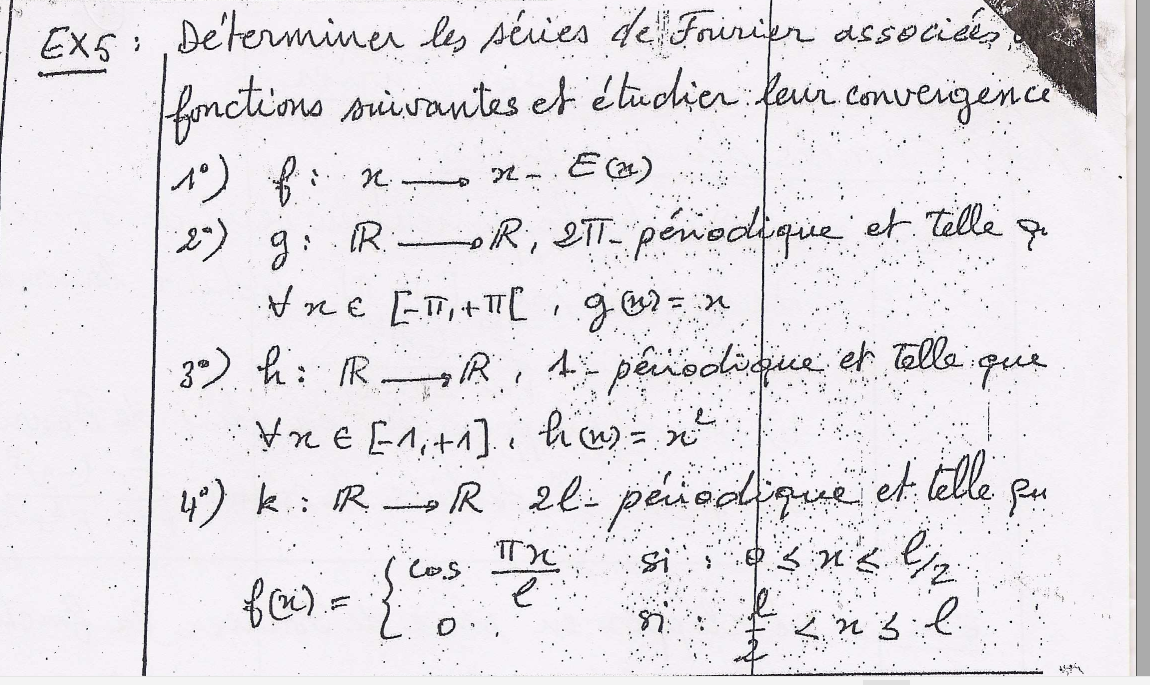 EX5 : Déterminer les séries de Fourier associées
fonctions suivantes et étudier leur convergence
1°) f : x → x - E(x)
2°) g : ℝ → ℝ, 2π - périodique et telle q
∀ x ∈ [-π, +π[ , g(x) = x
3°) h : ℝ → ℝ , 1 - périodique et telle que
∀ x ∈ [-1, +1] , h(x) = x²
4°) k : ℝ → ℝ 2l - périodique et telle qu
f(x) = { cos πx/l si : 0 ≤ x ≤ l/2
0 . si : l/2 < x ≤ l